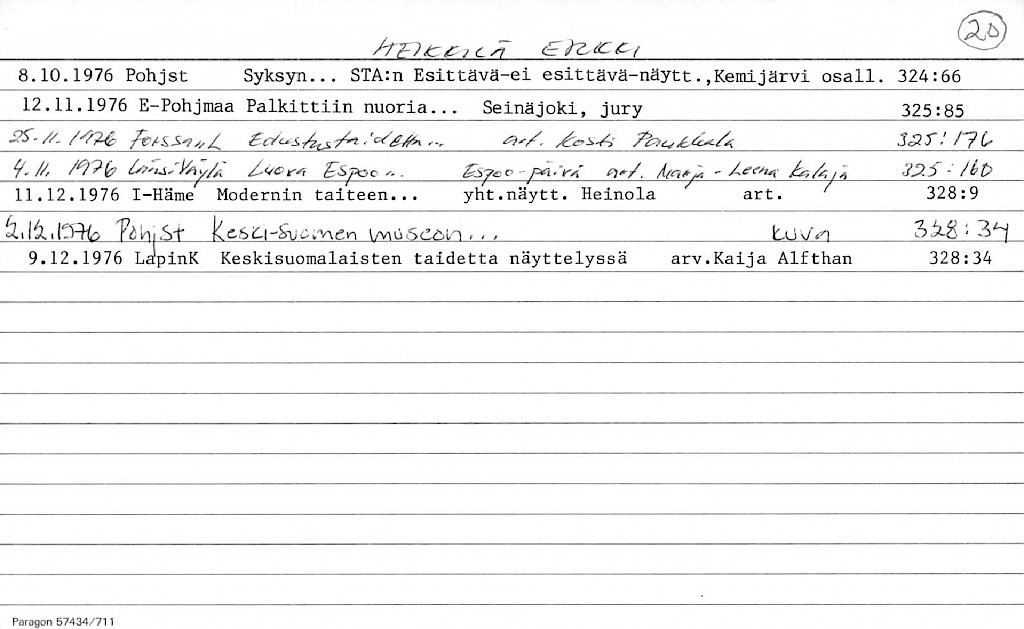 20
HEIKKILÄ ERKKI
8.10.1976 Pohjst Syksyn... STA:n Esittävä-ei esittävä-näytt.,Kemijärvi osall. 324:66
12.11.1976 E-Pohjmaa Palkittiin nuoria... Seinäjoki, jury 325:85
25.11.1976 ForssanL Edustustaidetta... art. Kosti Paukkala 325:176
4.11.1976 LänsiVäylä Luova Espoo... Espoo-päivä art. Marja-Leena Kalaja 325:160
11.12.1976 I-Häme Modernin taiteen... yht.näytt. Heinola art. 328:9
2.12.1976 Pohjst Keski-Suomen museon... kuva 328:34
9.12.1976 LapinK Keskisuomalaisten taidetta näyttelyssä arv.Kaija Alfthan 328:34
Paragon 57434/711